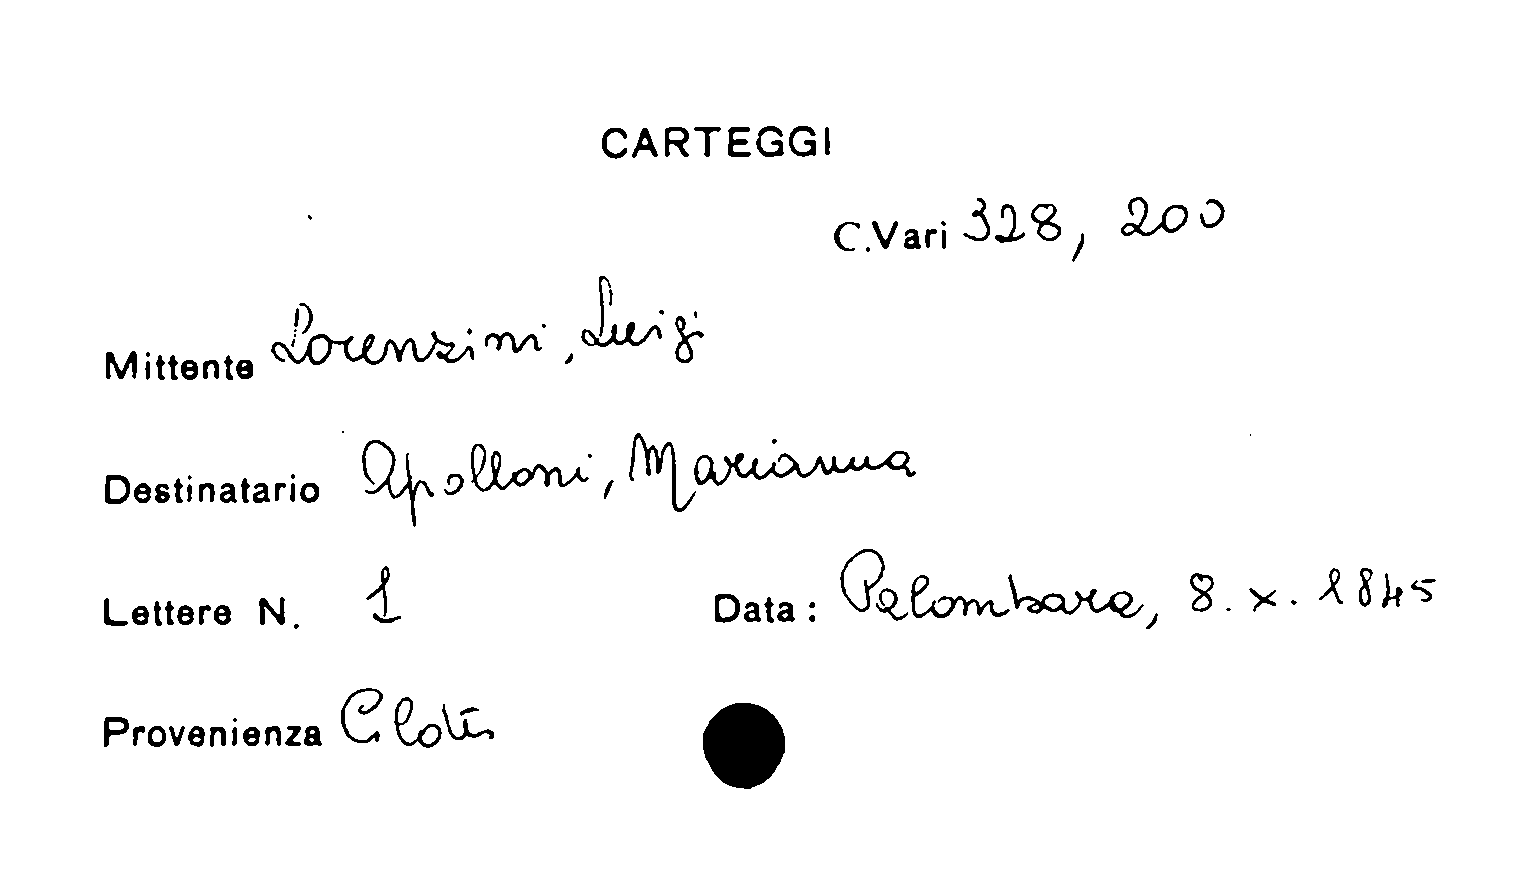 CARTEGGI
C.Vari 328, 200
Mittente Lorenzini, Luigi
Destinatario Apolloni, Marianna
Lettere N. 1 Data: Palombara, 8. x. 1845
Provenienza